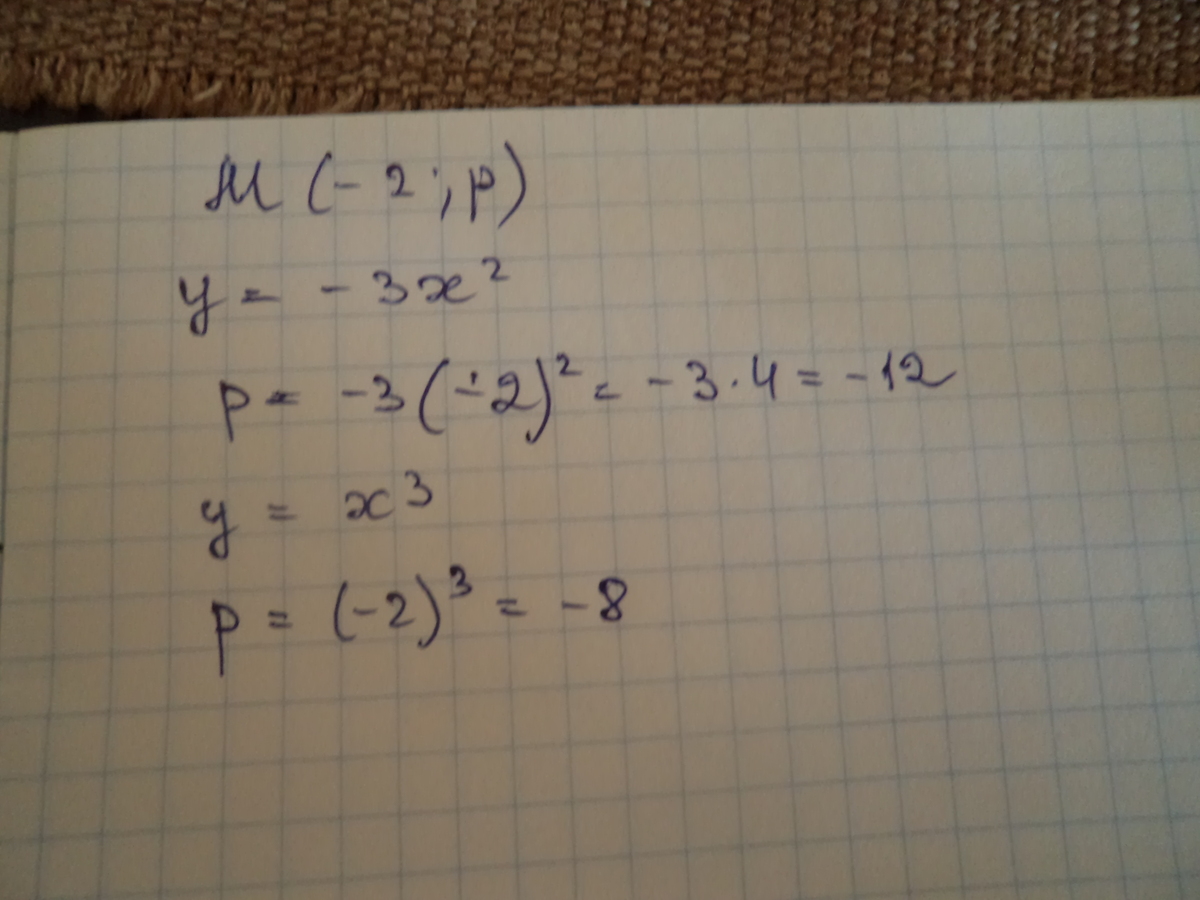 M (-2; p)
y = -3x²
p = -3(-2)² = -3·4 = -12
y = x³
p = (-2)³ = -8